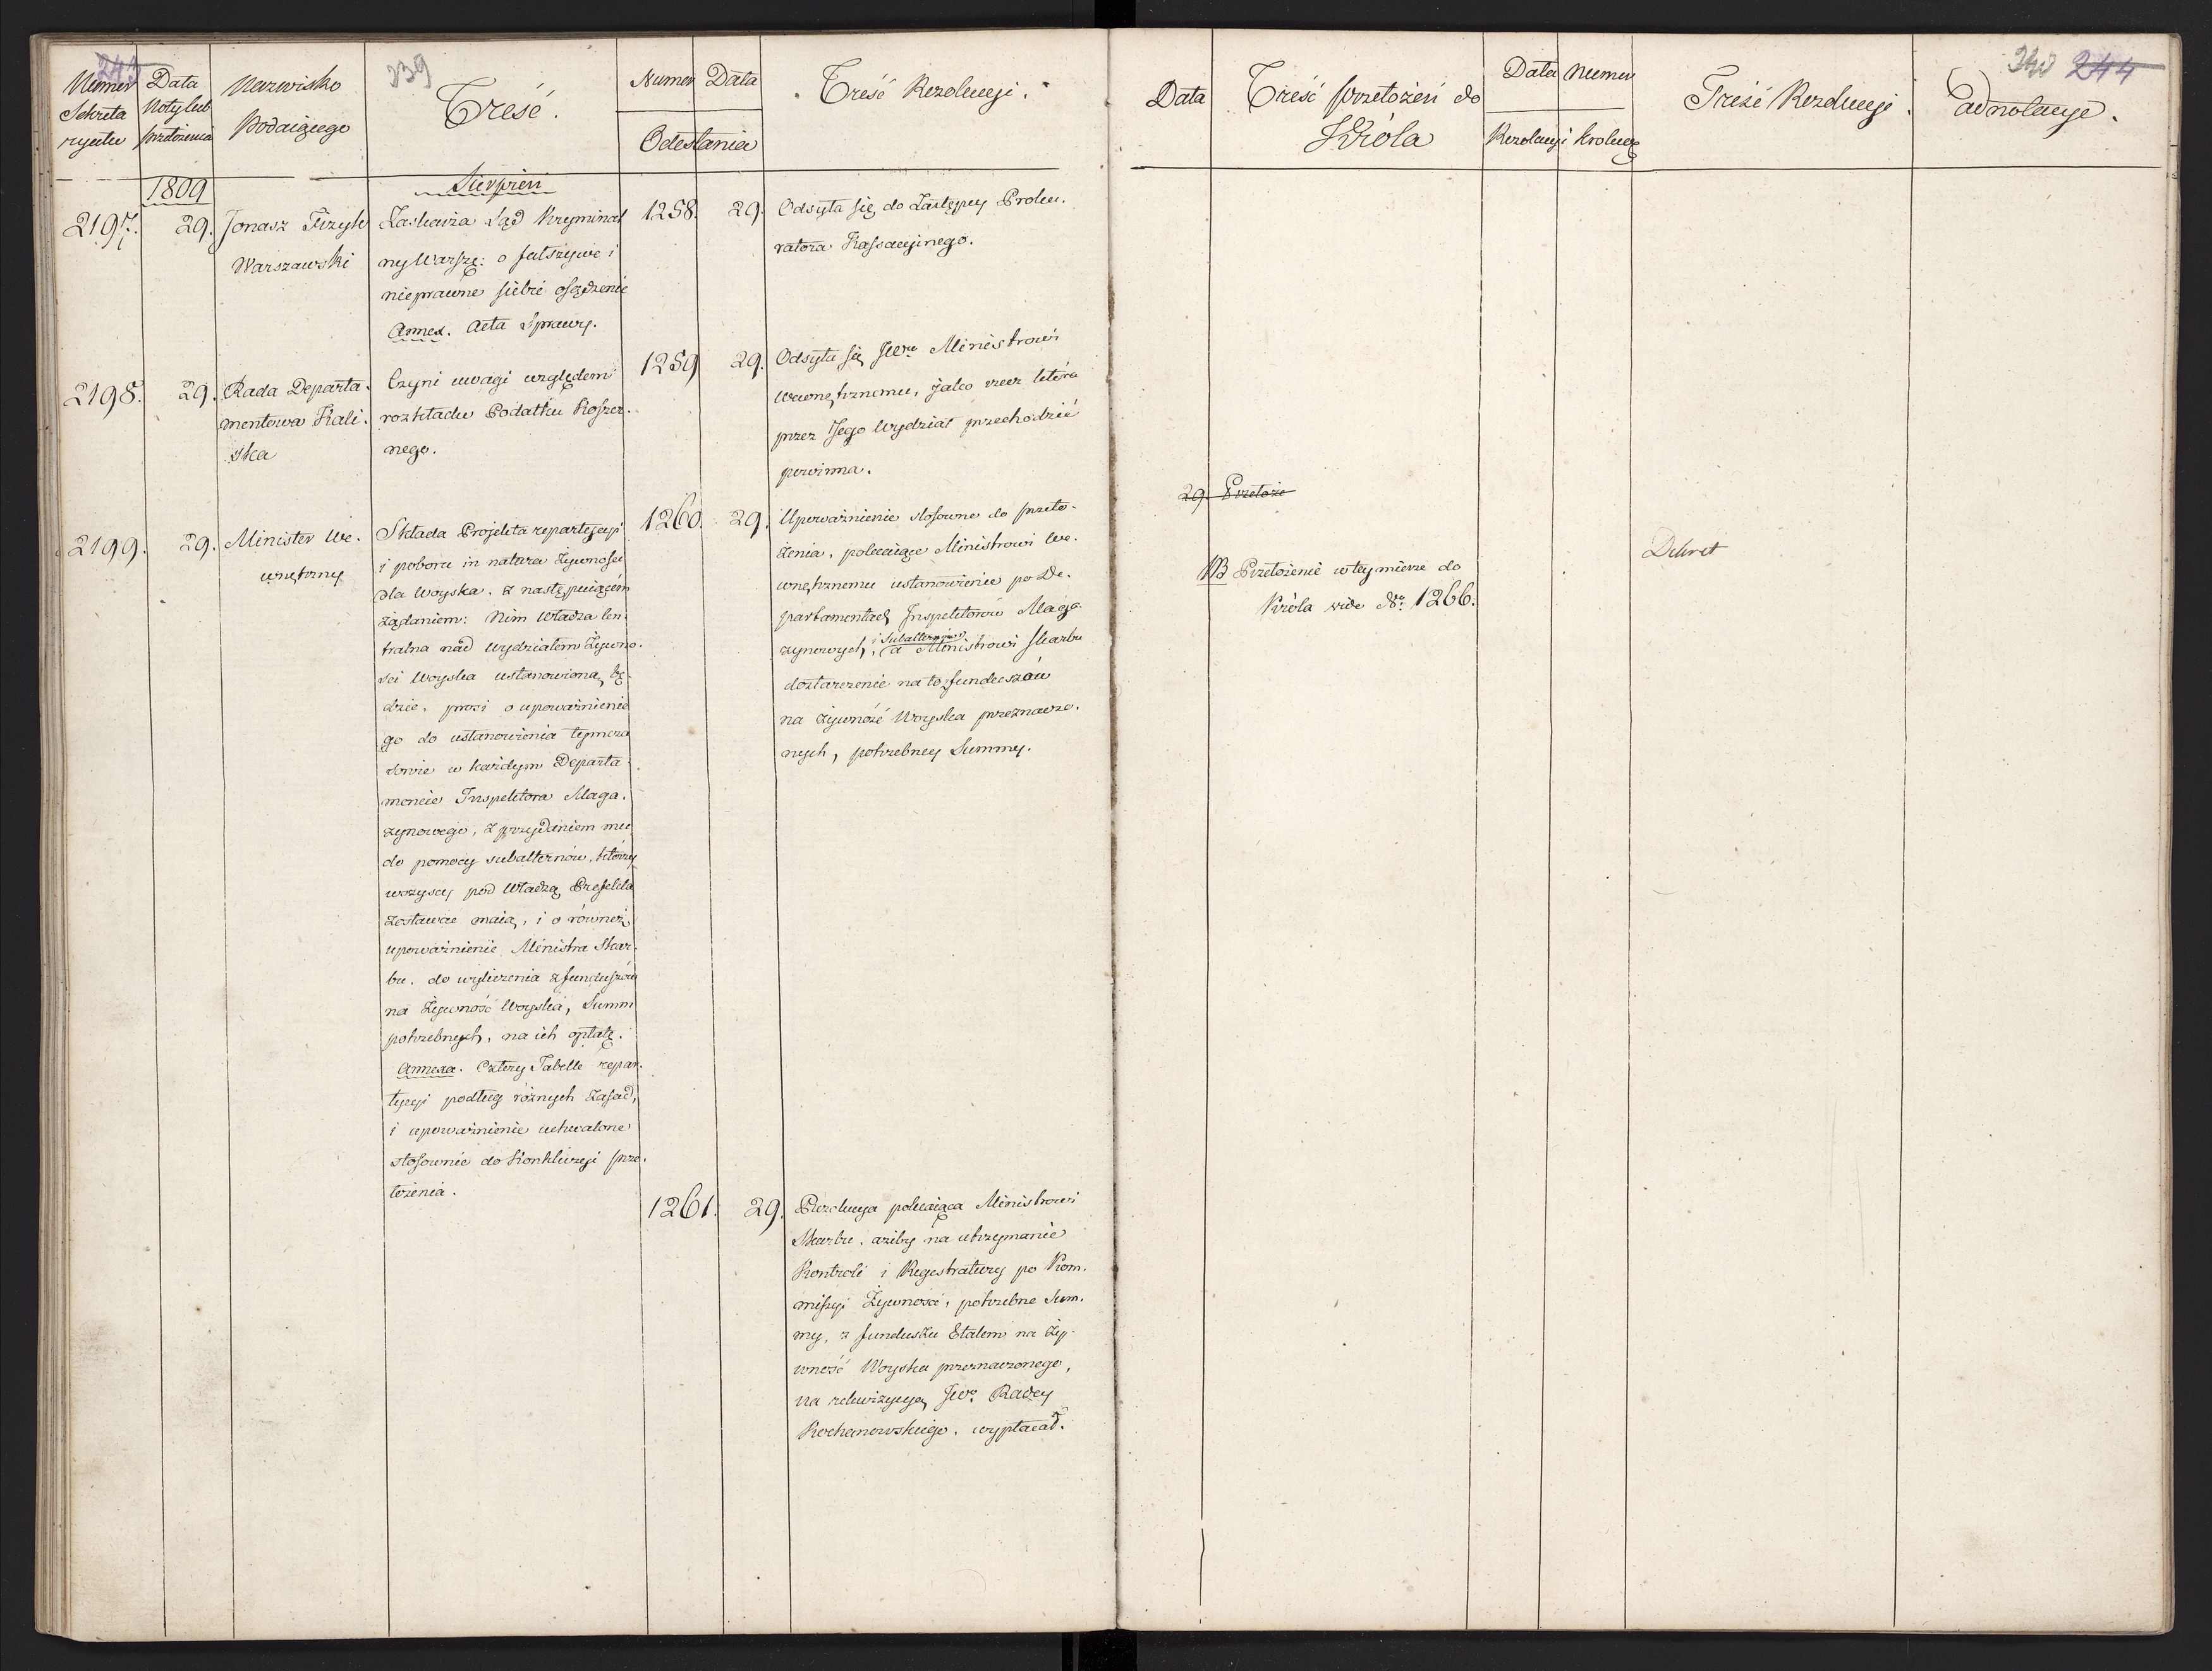 243
239
Numer Sekretaryatu
Data Noty lub przełożenia
Nazwisko Podaiącego
Treść.
Numer Data
Odesłania
Treść Rezolucyi.
1809
Sierpień
2197.
29.
Jonasz Fizyk
Warszawski
Zaskarża Sąd Kryminal
ny Warszę: o fałszywe i
nieprawne siebie osądzenie
Annex. Acta Sprawy.
1258.
29.
Odsyła się do Zastępcy Proku.
ratora Kassacyinego.
2198.
29.
Rada Departa.
mentowa Kali.
ska
Czyni uwagi względem
rozkładu Podatku Koszer.
nego.
1259
29.
Odsyła się JWu Ministrowi
Wewnętrznemu, jako rzecz która
przez Jego Wydział przechodzić
powinna.
2199.
29.
Minister We.
wnętrzny
Składa Projekta repartycyi
i poboru in natura żywności
dla Woyska. z następuiącém
żądaniem: Nim Władza Cen
tralna nad Wydziałem Żywno.
ści Woyska ustanowioną bę.
dzie. prosi o upoważnienie
go do ustanowienia tymcza
sowie w każdym Departa.
mencie Inspektora Maga.
zynowego, z przydaniem mu
do pomocy subalternów, którzy
wszyscy pod Władzą Prefekta
zostawać maią, i o również
upoważnienie Ministra Skar.
bu. do wyliczenia z funduszów
na Żywność Woyska, Summ
potrzebnych, na ich opłatę.
Annexa. Cztery Tabelle repar.
tycyi podług różnych Zasad,
i upoważnienie uchwalone
stosownie do Konkluzyi prze.
łożenia.
1260.
29.
Upoważnienie stosowne do przeło-
żenia, polecaiące Ministrowi We.
wnętrznemu ustanowienie po De.
partamentach Inspektorów Maga
i Subalternów
zynowych, a Ministrowi Skarbu
dostarczenie na to z funduszów
na żywność Woyska przeznaczo.
nych, potrzebney Summy.
1261.
29.
Rezolucya polecaiąca Ministrowi
Skarbu. ażeby na utrzymanie
Kontroli i Regestratury po Kom.
missyi Żywności, potrzebne Sum.
my, z funduszu Etatem na ży-
wność Woyska przeznaczonego,
na rekwizycyą JWo Radcy
Kochanowskiego. wypłacał.
240 244
Data
Treść przełożeń do
Króla
Data Numer
Rezolucyi Królewę
Treść Rezolucyi.
Adnotacye.
29. Przełoże
NB Przełożenie w tey mierze do
Króla vide No 1266.
Dekret